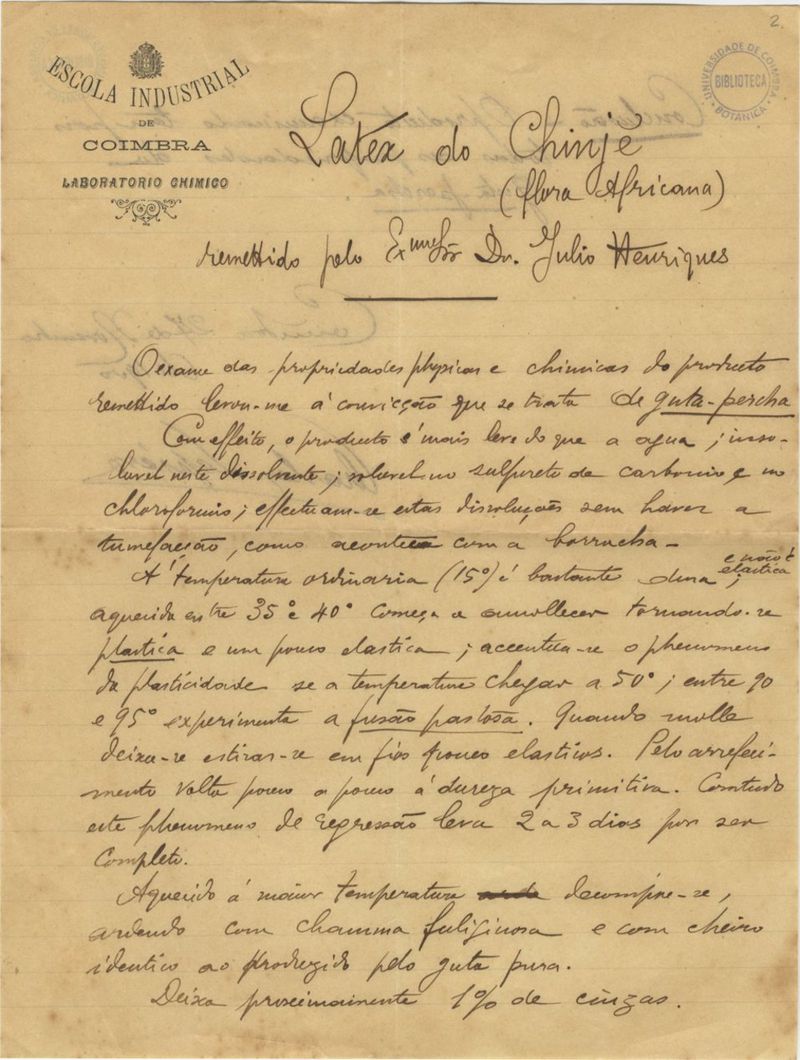 2.
ESCOLA INDUSTRIAL
DE
COIMBRA
LABORATORIO CHIMICO
UNIVERSIDADE DE COIMBRA
BIBLIOTECA
BOTANICA
Latex do Chinjê
(flora Africana)
remettido pelo Exmo Sñr Dr. Julio Henriques
O exame das propriedades physicas e chimicas do producto
remettido levou-me á convicção que se trata de guta-percha
Com effeito, o producto é mais leve do que a agua; inso-
luvel neste dissolvente; soluvel no sulfureto de carbonio e no
chloroformio; effectuam-se estas dissoluções sem haver a
tumefacção, como acontece com a borracha -
e não é
Á temperatura ordinaria (15º) é bastante dura; elastica
aquecida entre 35º e 40º começa a amollecer tornando-se
plastica e um pouco elastica; accentua-se o phenomeno
da plasticidade se a temperatura chegar a 50º; entre 90
e 95º experimenta a fusão pastosa. Quando molle
deixa-se estirar-se em fios pouco elasticos. Pelo arrefeci-
mento volta pouco a pouco á dureza primitiva. Comtudo
este phenomeno de regressão leva 2 a 3 dias por ser
completo.
Aquecido á maior temperatura decompõe-se,
ardendo com chamma fuliginosa e com cheiro
identico ao produzido pelo guta pura.
Deixa proximamente 1% de cinzas.